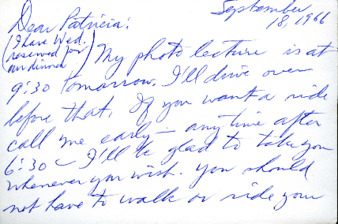 September
18, 1966
Dear Patricia:
(I have Wed.
reserved for
our dinner)
My photo lecture is at
9:30 tomorrow. I'll drive over
before that. If you want a ride
call me early – any time after
6:30 – I'll be glad to take you
whenever you wish. You should
not have to walk or ride your